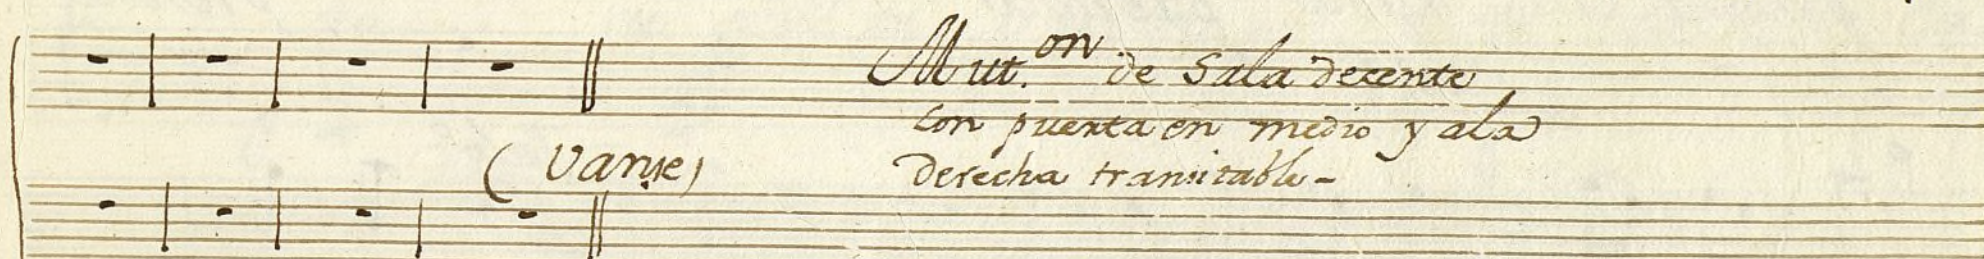 Mut.on de Sala decente
con puerta en medio y ala
(Vanse)
derecha transitable-